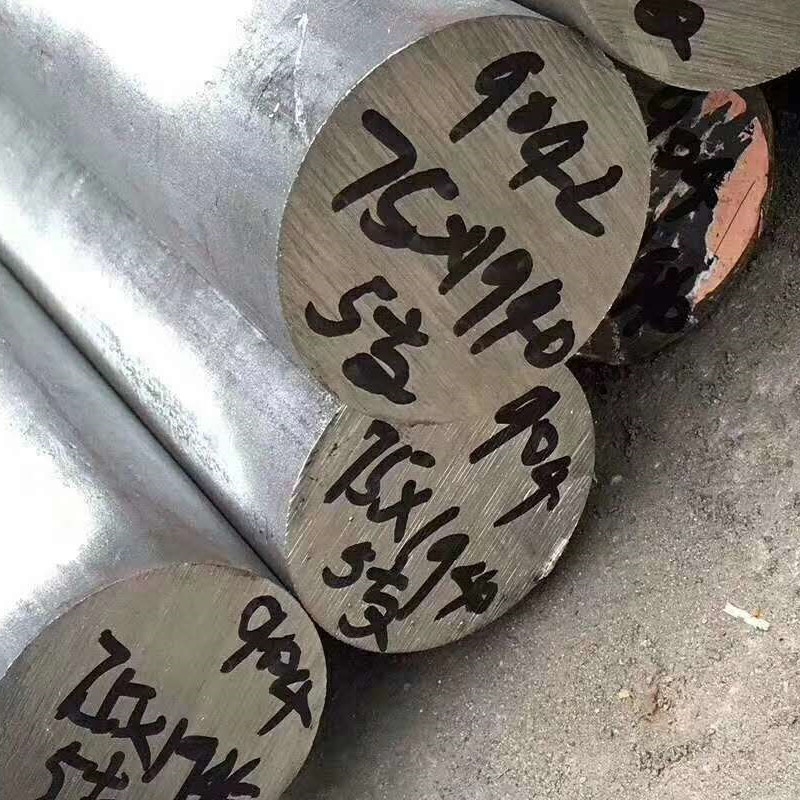 904L
75X1940
5支
904
75X1940
5支
904
75X194
5支
904